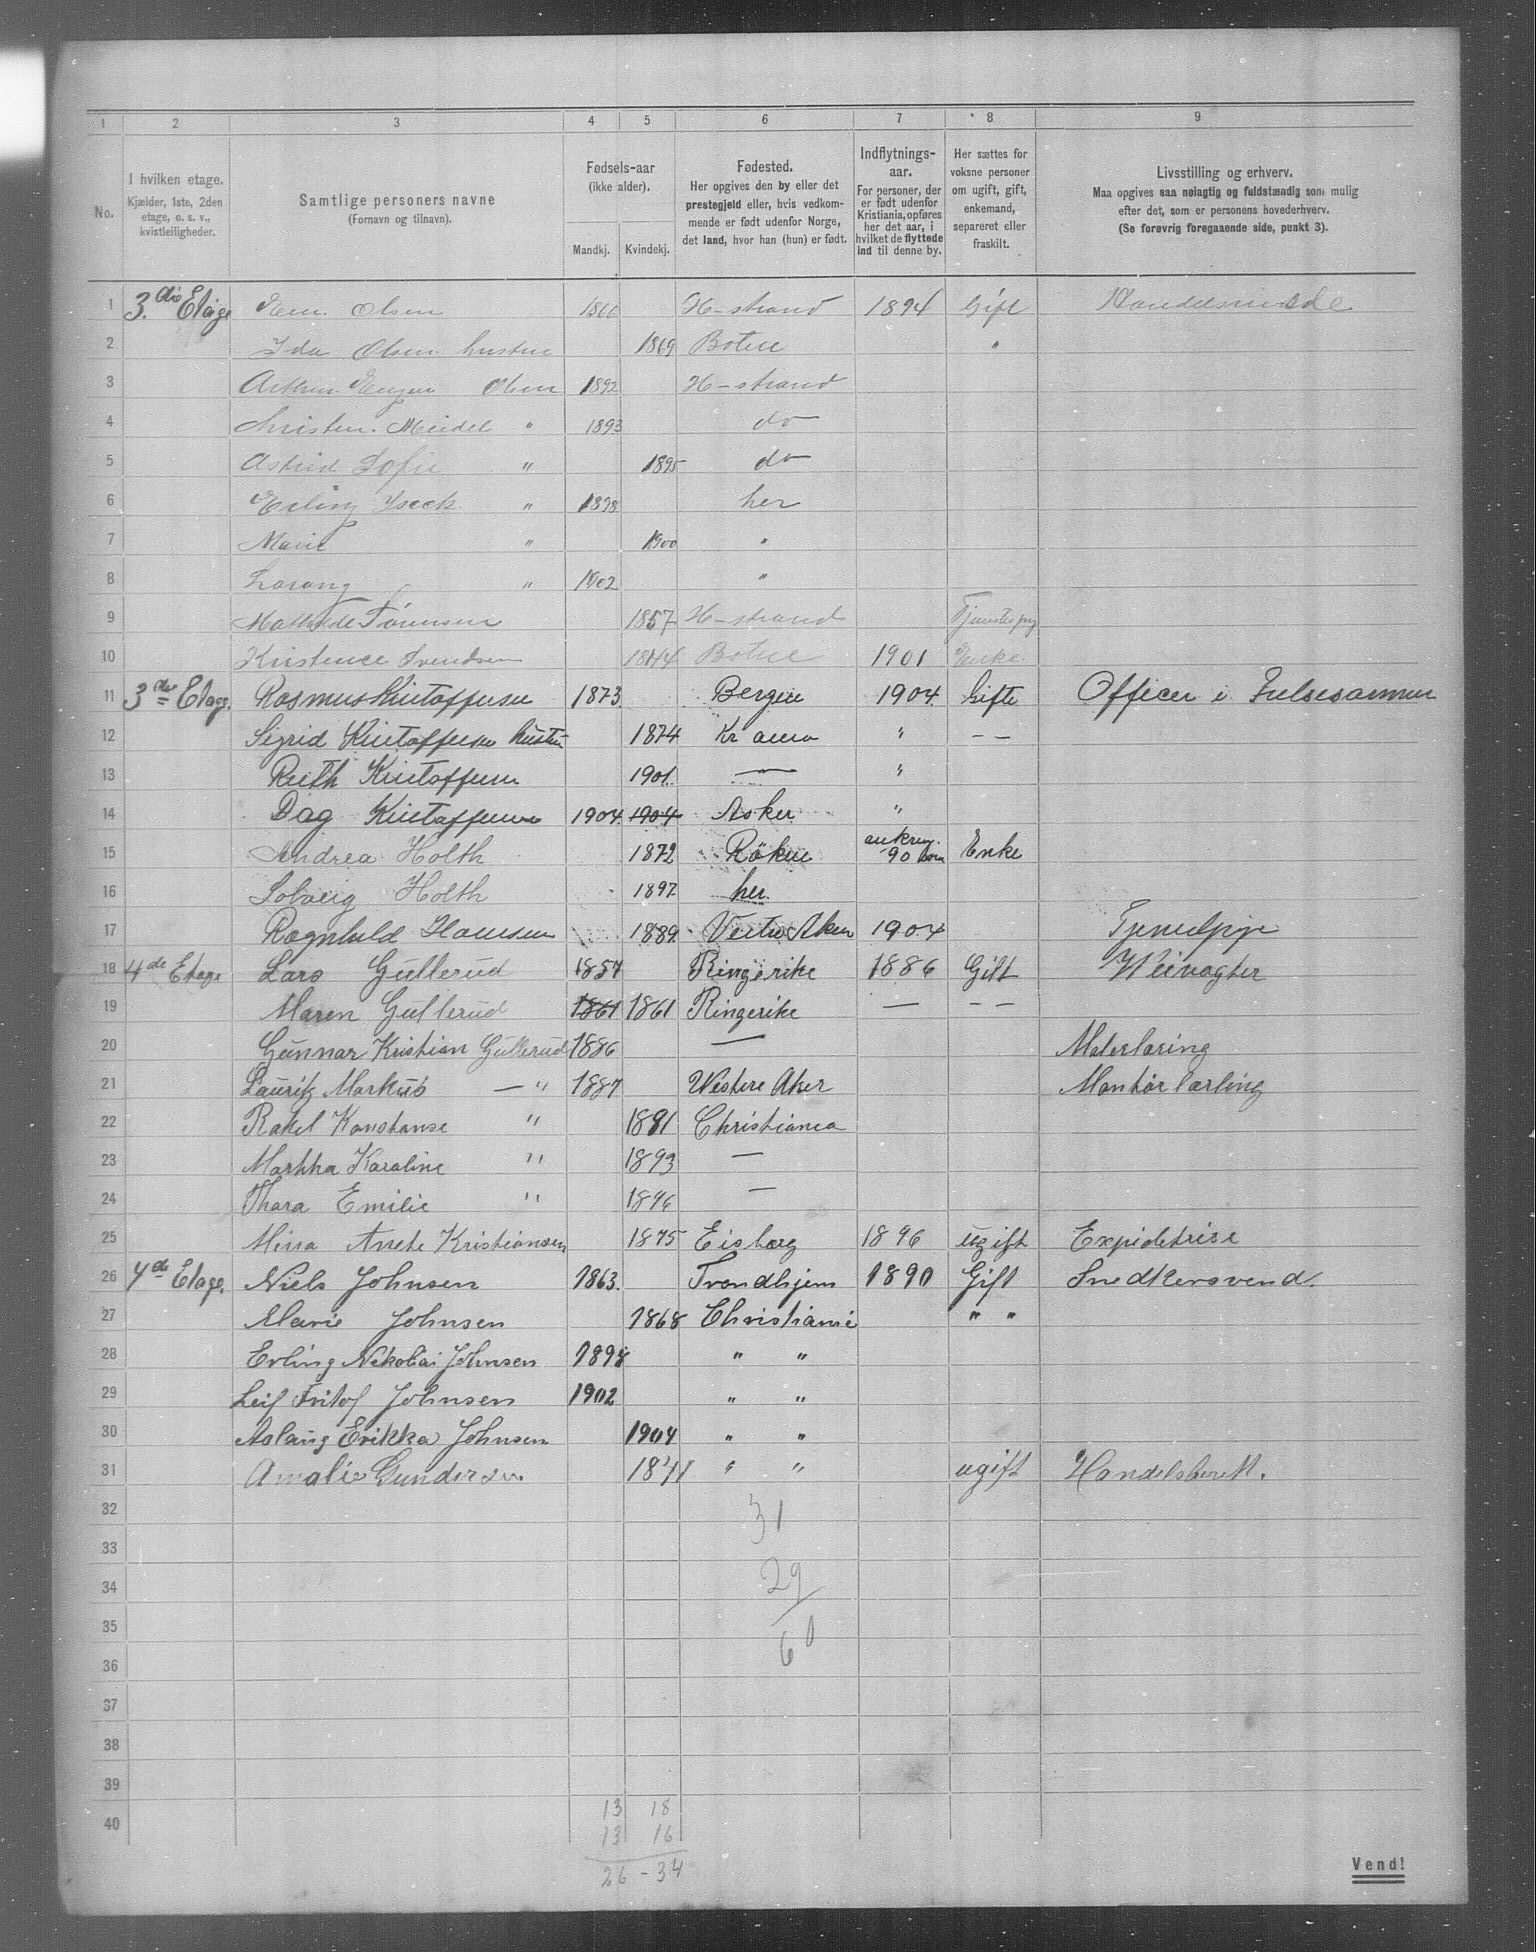 1 2 3 4 5 6 7 8 9
No.
I hvilken etage.
Kjælder, 1ste, 2den
etage, o. s. v.,
kvistleiligheder.
Samtlige personers navne
(Fornavn og tilnavn).
Fødsels-aar
(ikke alder).
Mandkj. Kvindekj.
Fødested.
Her opgives den by eller det
prestegjeld eller, hvis vedkom-
mende er født udenfor Norge,
det land, hvor han (hun) er født.
Indflytnings-
aar.
For personer, der
er født udenfor
Kristiania, opføres
her det aar, i
hvilket de flyttede
ind til denne by.
Her sættes for
voksne personer
om ugift, gift,
enkemand,
separeret eller
fraskilt.
Livsstilling og erhverv.
Maa opgives saa nøiagtig og fuldstændig som mulig
efter det, som er personens hovederhverv.
(Se forøvrig foregaaende side, punkt 3).
1 3. die Etage Olsen 1866 H-strand 1894 Gift
2 Ida Olsen hustru 1869 Botne "
3 Olsen 1892 H-strand
4 Meidel " 1893 do
5 Astrid Sofie " 1895 do
6 Erling " 1898 her
7 Marie " 1900 "
8 " 1902 "
9 Sørensen 1857 H-strand
10 Kristence Svendsen 1844 Botne 1901 Enke
11 3 die Etage. Rasmus Kristoffersen 1873 Bergen 1904 Gifte Officer i Frelsesarmen
12 Sigrid Kristoffersen hustru 1874 Kr ania " — —
13 Ruth Kristoffersen 1901 — "
14 Dag Kristoffersen 1904 1904 Asker "
15 Andrea Holth 1872 Røken 90 Enke
16 Solveig Holth 1897 her
17 Ragnhild Hansen 1889 Vestre Aker 1904 Tjenestpige
18 4 de Etage Lars Gullerud 1857 Ringerike 1886 Gift Weivogter
19 Maren Gullerud 1861 1861 Ringerike — — —
20 Gunnar Kristian Gullerud 1886 — Malerlæring
21 Lauritz Markus — " 1887 Westere Aker Montør lærling
22 Rakel Konstanse " 1891 Christiania
23 Martha Karaline " 1893 —
24 Thara Emilie " 1896 —
25 Mina Anete Kristiansen 1875 1896 ugift Expidetrise
26 4 de Etage. Niels Johnsen 1863. Trondhjem 1890 Gift Snedkersvend.
27 Marie Johnsen 1868 Christiania " "
28 Erling Nikolai Johnsen 1898 " "
29 Leif Fritof Johnsen 1902 " "
30 Aslaug Erikka Johnsen 1904 " "
31 Amalie Gundersen 1841 " " ugift
32 31
33
34 29
35
36 60
37
38
39
40
13 18
13 16
26 - 34
Vend!